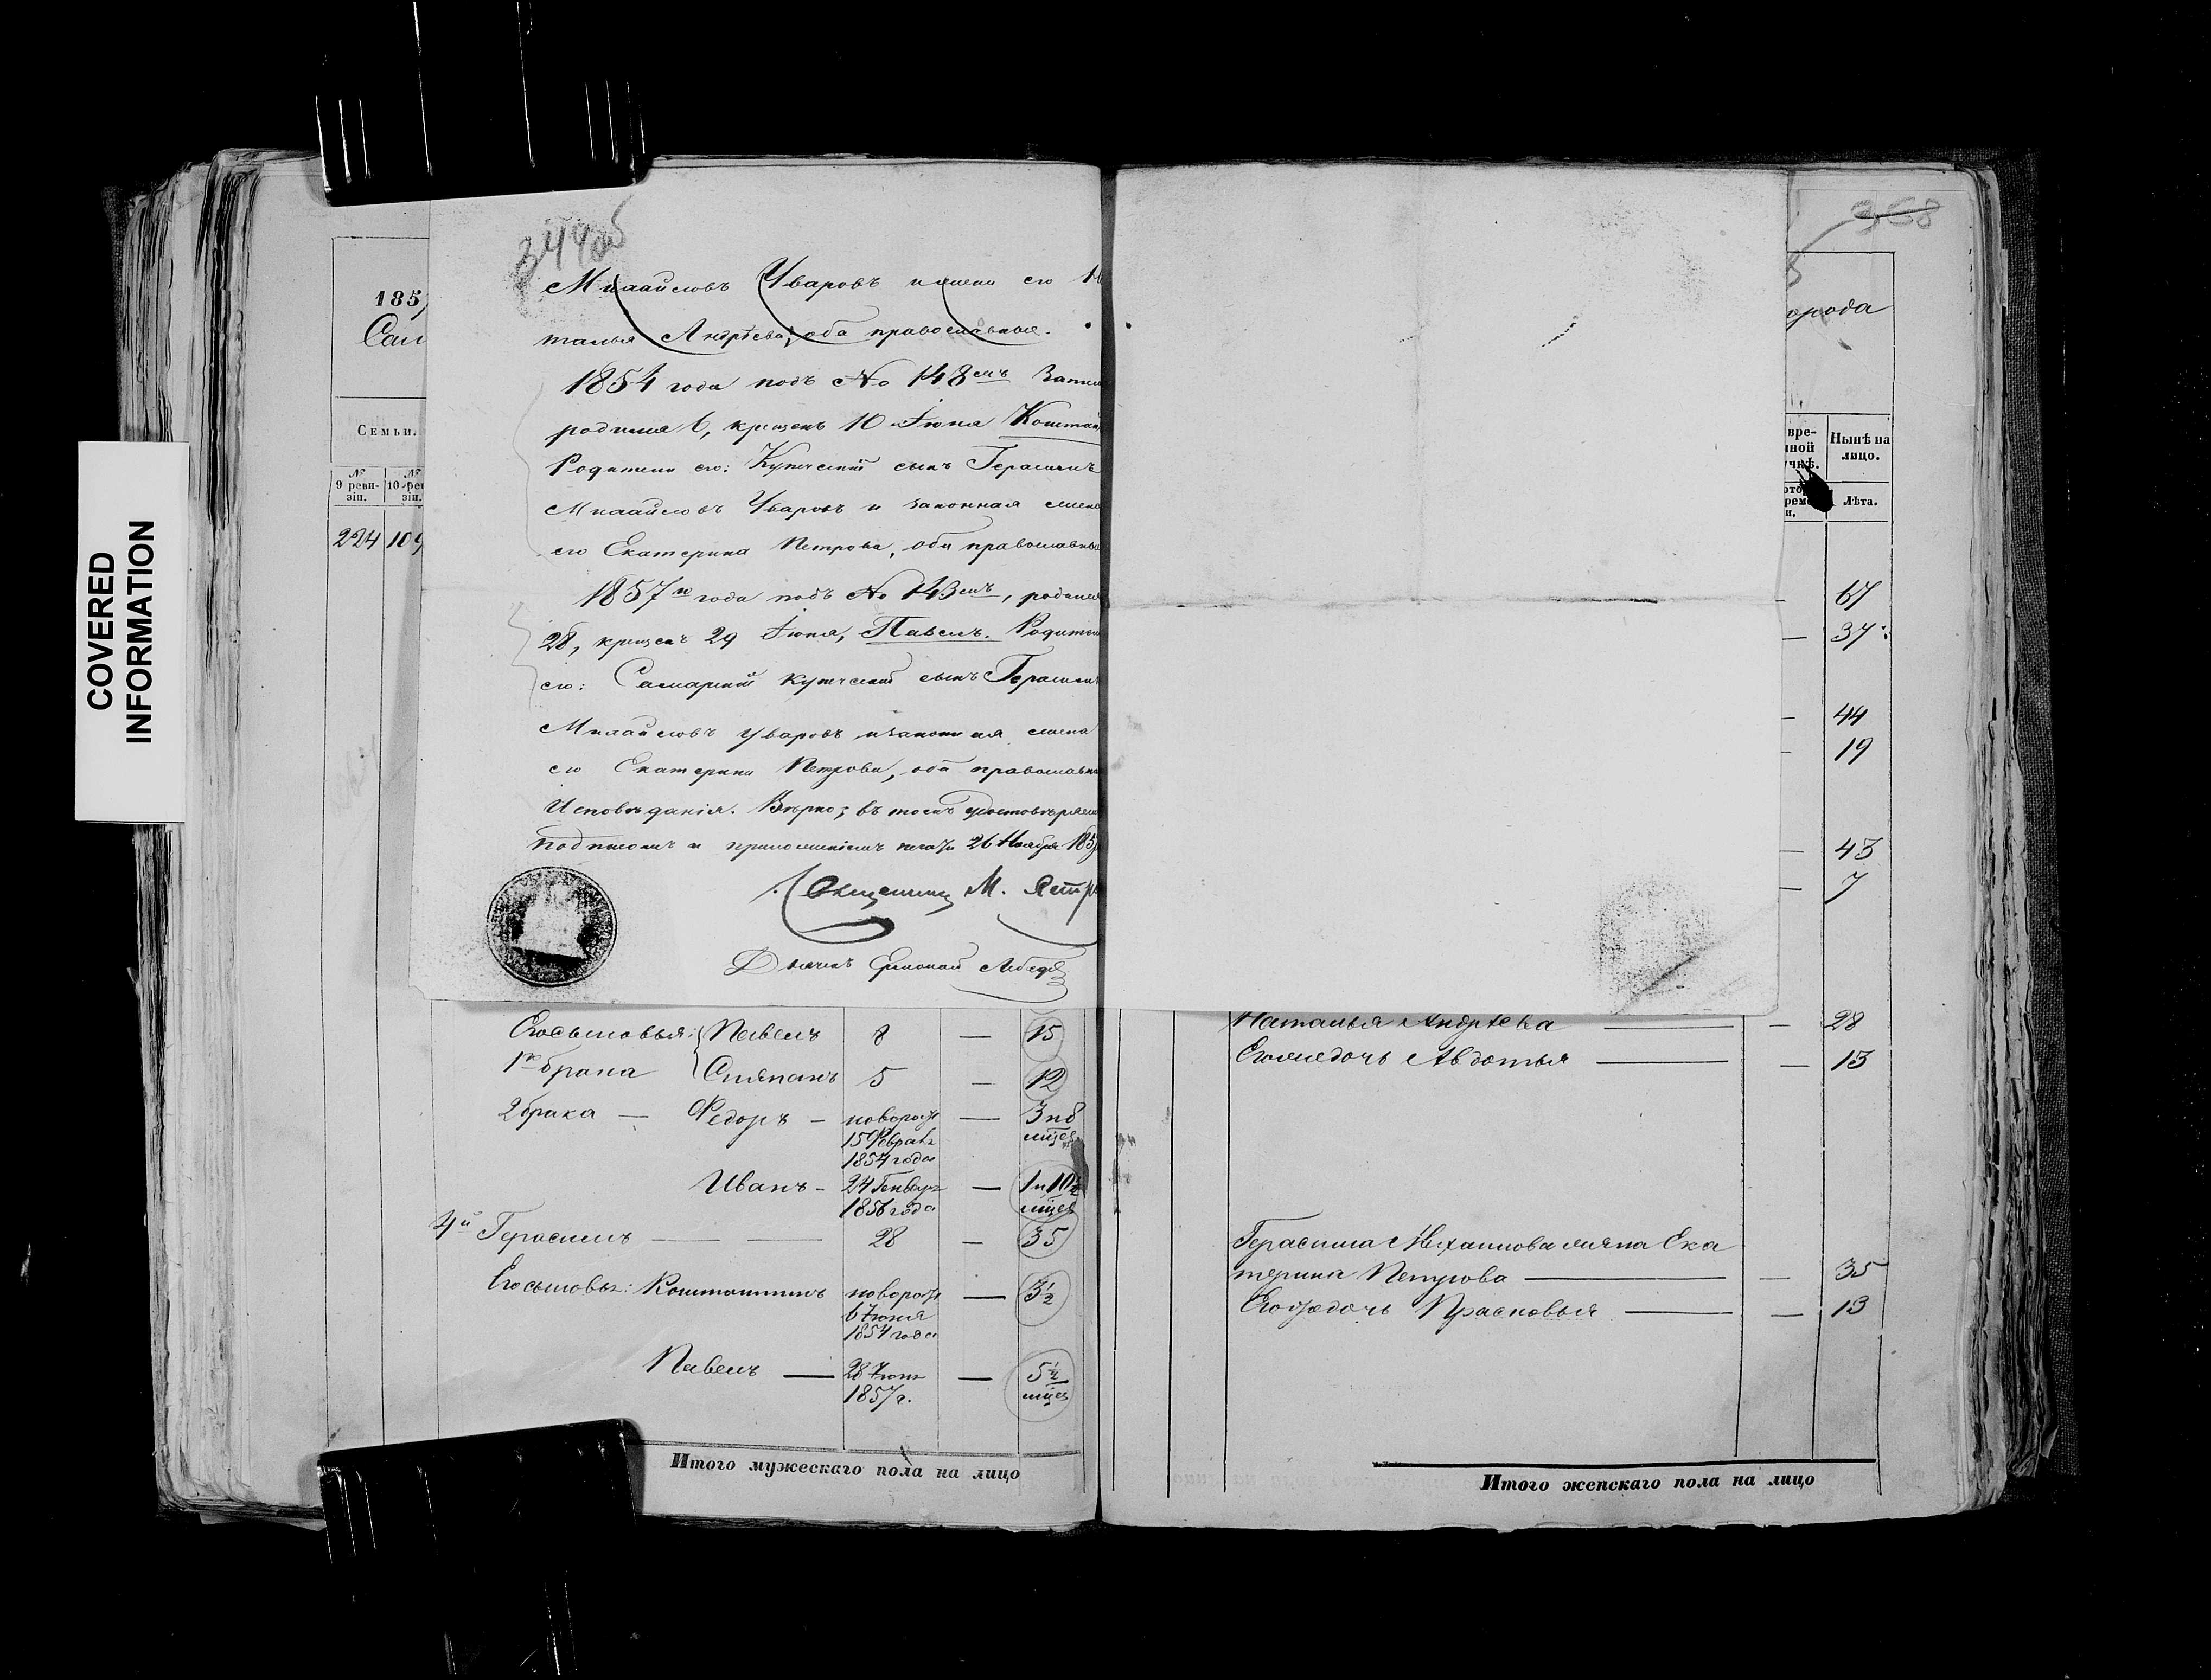 COVERED
INFORMATION
344об
Михайловъ Уваровъ и жена его На
талья Андрѣева, оба православные.
1854 года подъ No 148мъ Запис
родился 6, крещенъ 10 Іюня Констан
Родители его: Купеческій сынъ Герасимъ
Михайловъ Уваровъ и законная жена
его Екатерина Петрова, оба православны
1857го года подъ No 143мъ, родился
28, крещенъ 29 Іюня, Павелъ. Родители
его: Самарскій купеческій сынъ Герасимъ
Михайловъ Уваровъ и законная жена
его Екатерина Петрова, оба православна
Исповѣданія. Вѣрно; въ томъ удостовѣряемъ
подписомъ и приложеніемъ печати 26 Ноября 185
Священникъ М. Петр
Дьячекъ Лебедев
185
Сам
Семьи.
№ 9 реви-зіи.
№ 10 рев зіи.
224
Его сыновья: Павелъ 8 — 15
1го брака Степанъ 5 — 12
2 брака — Федоръ — новорож — 3 и 8
15 Февраля мѣсяц
1854 года
Иванъ — 24 Генваря — 1 и 10½
1856 года мѣсяц
4й Герасимъ — 28 — 35
Его сыновья: Константинъ новорож — 3½
6 Іюня
1854 года
Павелъ — 28 Іюня — 5½
1857 г. мѣсяц
Итого мужескаго пола на лицо
358
орода
вре-
ной
чкѣ.
Нынѣ на
лицо.
Лѣта.
67
37
44
19
43
7
Наталья Андрѣева — 28
Его же дочь Авдотья — 13
Герасима Михайлова жена Ека
терина Петрова — 35
Его же дочь Прасковья — 13
Итого женскаго пола на лицо